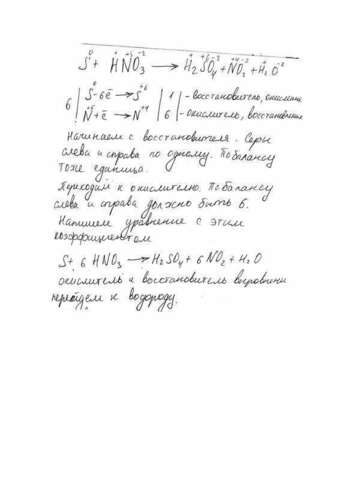 S⁰ + H⁺N⁺⁵O₃⁻² → H₂⁺S⁺⁶O₄⁻² + N⁺⁴O₂⁻² + H₂⁺O⁻²
6 | S⁰ - 6ē → S⁺⁶ | 1 | - восстановитель, окисление
N⁺⁵ + ē → N⁺⁴ | 6 | - окислитель, восстановление
Начинаем с восстановителя. Серы
слева и справа по одному. По балансу
тоже единица.
Переходим к окислителю. По балансу
слева и справа должно быть 6.
Напишем уравнение с этим
коэффициентом
S + 6HNO₃ → H₂SO₄ + 6NO₂ + H₂O
окислитель и восстановитель
перейдем к водороду.